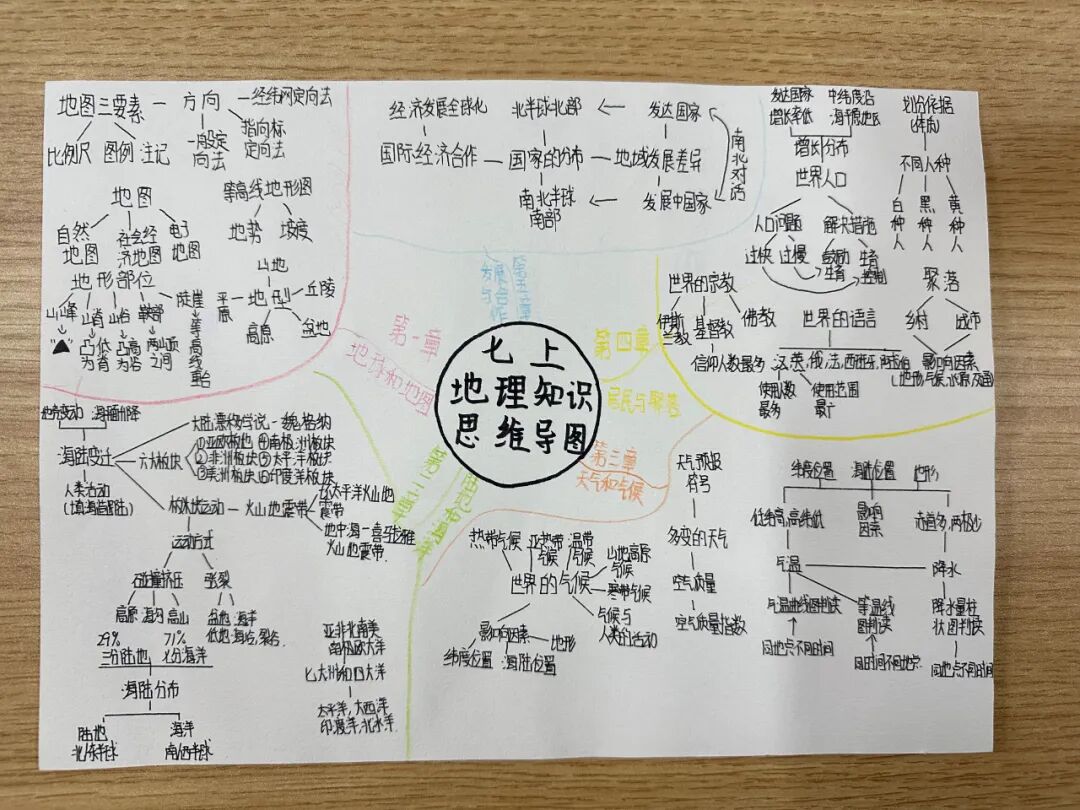 七上
地理知识
思维导图
第一章
地球和地图
地图三要素
方向
经纬网定向法
指向标
定向法
一般定
向法
比例尺
图例
注记
地图
自然
地图
社会经
济地图
电子
地图
等高线地形图
地势
坡度
地形部位
山峰
"▲"
山脊
凸低
为脊
山谷
凸高
为谷
鞍部
两山顶
之间
陡崖
等高线重合
地形
山地
丘陵
平原
高原
盆地
第二章
海陆变迁
地壳变动
海平面升降
人类活动
(填海造陆)
大陆漂移学说—魏格纳
六大板块
①亚欧板块 ④南极洲板块
②非洲板块 ⑤太平洋板块
③美洲板块 ⑥印度洋板块
板块运动
火山地震带
环太平洋火山地
震带
地中海—喜马拉雅
火山地震带
运动方式
碰撞挤压
张裂
高原
海沟
高山
29%
三分陆地
71%
七分海洋
海陆分布
陆地
北/东半球
海洋
南/西半球
亚非北南美
南极欧大洋
七大洲和四大洋
太平洋,大西洋
印度洋,北冰洋
第三章
天气和气候
天气预报
符号
多变的天气
空气质量
空气质量指数
世界的气候
热带气候
亚热带
气候
温带
气候
山地高原
气候
寒带气候
气候与
人类的活动
影响因素
纬度位置
海陆位置
地形
纬度位置
海陆位置
地形
影响
因素
低纬高,高纬低
赤道多,两极少
气温
降水
气温曲线图判读
同地点不同时间
等温线
图判读
同时间不同地点
降水量柱
状图判读
同地点不同时间
第四章
居民与聚落
发达国家
增长率低
中纬度沿
海平原地区
增长
分布
世界人口
人口问题
过快
过慢
解决措施
鼓励
生育
生育
控制
划分依据
(体质)
不同人种
白种人
黑种人
黄种人
世界的宗教
伊斯
兰教
基督教
信仰人数最多
佛教
世界的语言
汉,英,俄,法,西班牙,阿拉伯
使用人数
最多
使用范围
最广
聚落
乡村
城市
影响因素
(地形,气候,水源,交通)
第五章
发展与合作
经济发展全球化
国际经济合作
国家的分布
北半球北部
南北半球
南部
地域发展差异
发达国家
发展中国家
南北对话